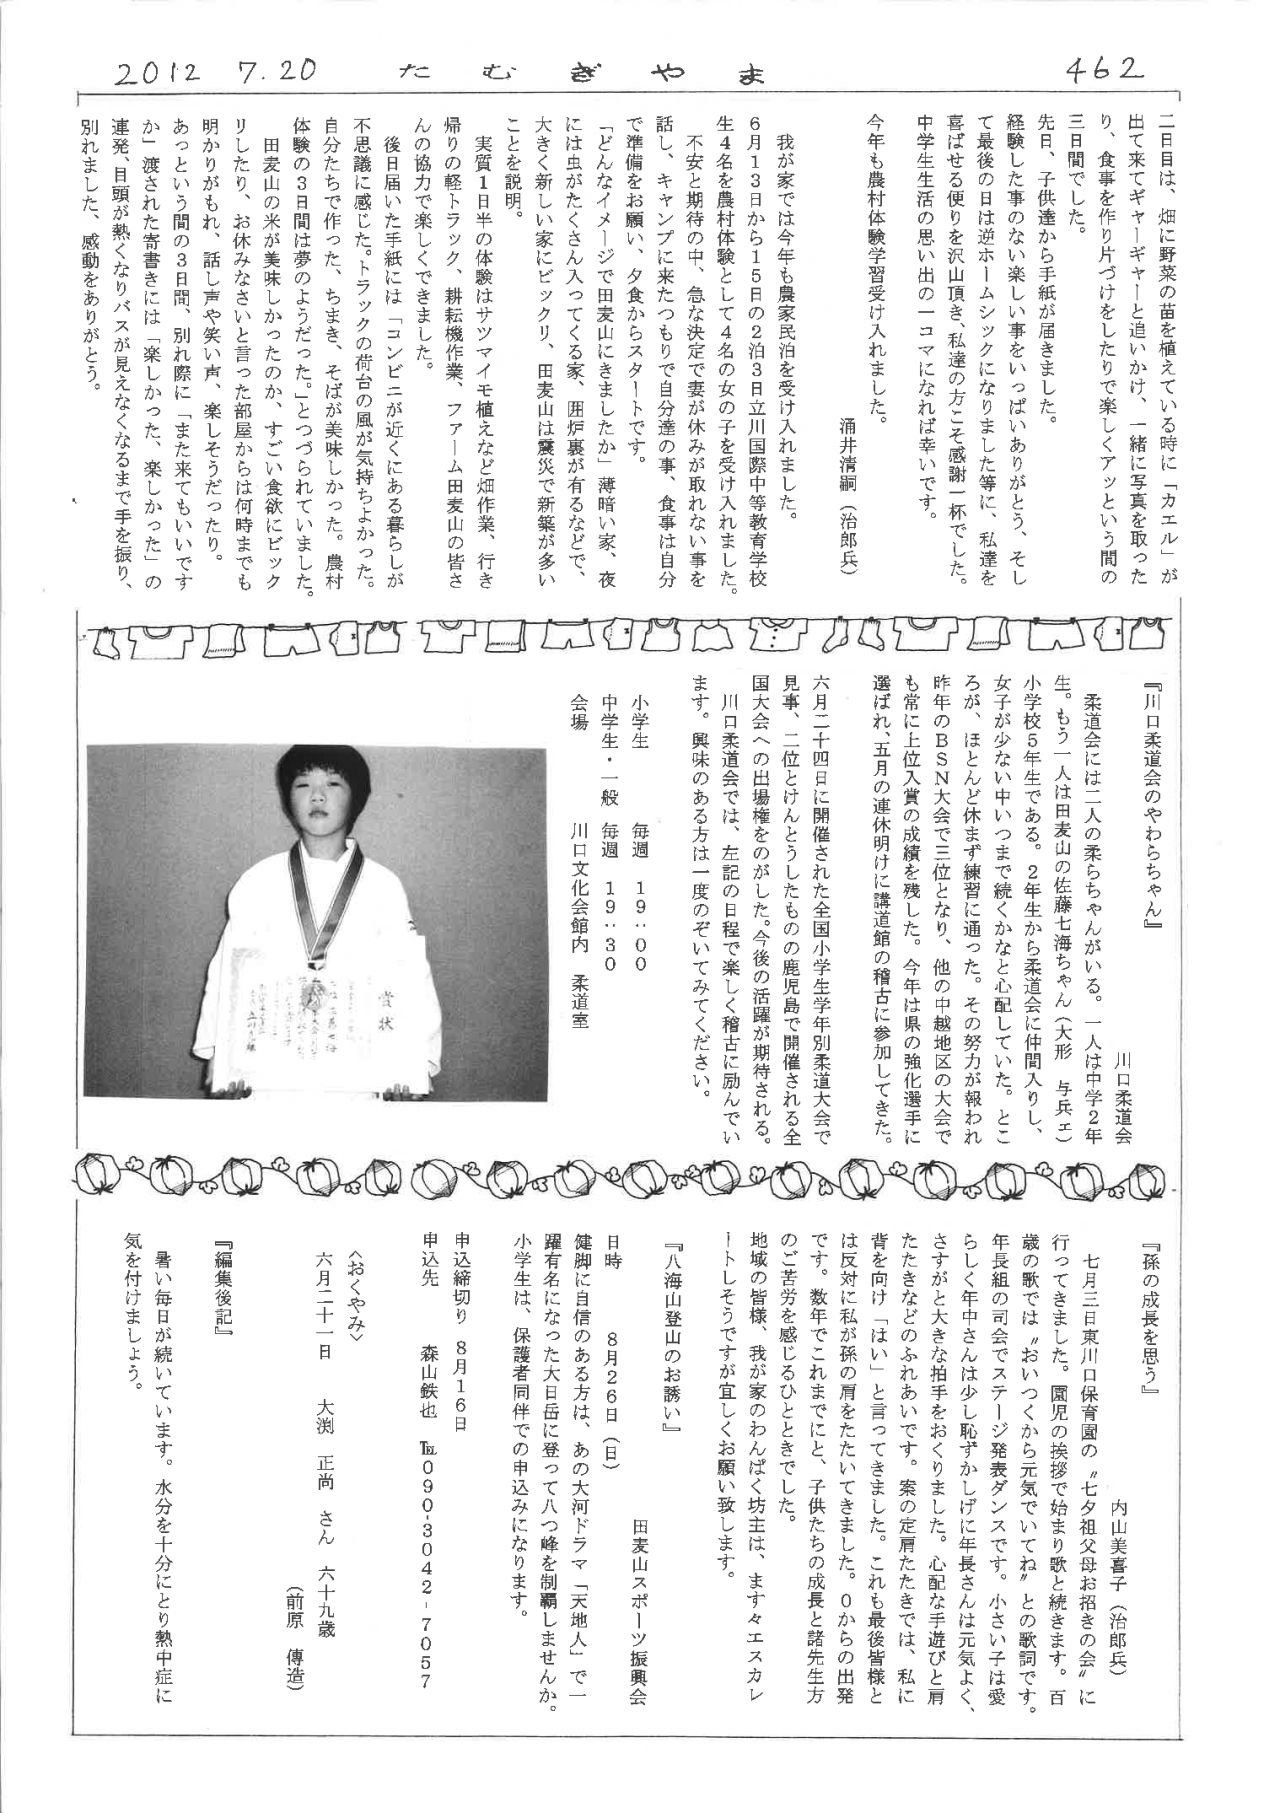 2012 7.20 たむぎやま 462
二日目は、畑に野菜の苗を植えている時に「カエル」が
出て来てギャーギャーと追いかけ、一緒に写真を取った
り、食事を作り片づけをしたりで楽しくアッという間の
三日間でした。
先日、子供達から手紙が届きました。
経験した事のない楽しい事をいっぱいありがとう、そし
て最後の日は逆ホームシックになりました等に、私達を
喜ばせる便りを沢山頂き、私達の方こそ感謝一杯でした。
中学生生活の思い出の一コマになれば幸いです。
今年も農村体験学習受け入れました。
涌井清嗣（治郎兵）
我が家では今年も農家民泊を受け入れました。
6月13日から15日の2泊3日立川国際中等教育学校
生4名を農村体験として4名の女の子を受け入れました。
不安と期待の中、急な決定で妻が休みが取れない事を
話し、キャンプに来たつもりで自分達の事、食事は自分
で準備をお願い、夕食からスタートです。
「どんなイメージで田麦山にきましたか」薄暗い家、夜
には虫がたくさん入ってくる家、囲炉裏が有るなどで、
大きく新しい家にビックリ、田麦山は震災で新築が多い
ことを説明。
実質1日半の体験はサツマイモ植えなど畑作業、行き
帰りの軽トラック、耕耘機作業、ファーム田麦山の皆さ
んの協力で楽しくできました。
後日届いた手紙には「コンビニが近くにある暮らしが
不思議に感じた。トラックの荷台の風が気持ちよかった。
自分たちで作った、ちまき、そばが美味しかった。農村
体験の3日間は夢のようだった。」とつづられていました。
田麦山の米が美味しかったのか、すごい食欲にビック
リしたり、お休みなさいと言った部屋からは何時までも
明かりがもれ、話し声や笑い声、楽しそうだったり。
あっという間の3日間、別れ際に「また来てもいいです
か」渡された寄書きには「楽しかった、楽しかった」の
連発、目頭が熱くなりバスが見えなくなるまで手を振り、
別れました、感動をありがとう。
『川口柔道会のやわらちゃん』
川口柔道会
柔道会には二人の柔らちゃんがいる。一人は中学2年
生。もう一人は田麦山の佐藤七海ちゃん（大形 与兵エ）
小学校5年生である。2年生から柔道会に仲間入りし、
女子が少ない中いつまで続くかなと心配していた。とこ
ろが、ほとんど休まず練習に通った。その努力が報われ
昨年のBSN大会で三位となり、他の中越地区の大会で
も常に上位入賞の成績を残した。今年は県の強化選手に
選ばれ、五月の連休明けに講道館の稽古に参加してきた。
六月二十四日に開催された全国小学生学年別柔道大会で
見事、二位とけんとうしたものの鹿児島で開催される全
国大会への出場権をのがした。今後の活躍が期待される。
川口柔道会では、左記の日程で楽しく稽古に励んでい
ます。興味のある方は一度のぞいてみてください。
小学生 毎週 19:00
中学生・一般 毎週 19:30
会場 川口文化会館内 柔道室
賞状
『孫の成長を思う』
内山美喜子（治郎兵）
七月三日東川口保育園の〝七夕祖父母お招きの会〟に
行ってきました。園児の挨拶で始まり歌と続きます。百
歳の歌では〝おいつくから元気でいてね〟との歌詞です。
年長組の司会でステージ発表ダンスです。小さい子は愛
らしく年中さんは少し恥ずかしげに年長さんは元気よく、
さすがと大きな拍手をおくりました。心配な手遊びと肩
たたきなどのふれあいです。案の定肩たたきでは、私に
背を向け「はい」と言ってきました。これも最後皆様と
は反対に私が孫の肩をたたいてきました。0からの出発
です。数年でこれまでにと、子供たちの成長と諸先生方
のご苦労を感じるひとときでした。
地域の皆様、我が家のわんぱく坊主は、ます々エスカレ
ートしそうですが宜しくお願い致します。
『八海山登山のお誘い』
田麦山スポーツ振興会
日時 8月26日（日）
健脚に自信のある方は、あの大河ドラマ「天地人」で一
躍有名になった大日岳に登って八つ峰を制覇しませんか。
小学生は、保護者同伴での申込みになります。
申込締切り 8月16日
申込先 森山鉄也 ℡090-3042-7057
〈おくやみ〉
六月二十一日 大渕 正尚 さん 六十九歳
（前原 傳造）
『編集後記』
暑い毎日が続いています。水分を十分にとり熱中症に
気を付けましょう。